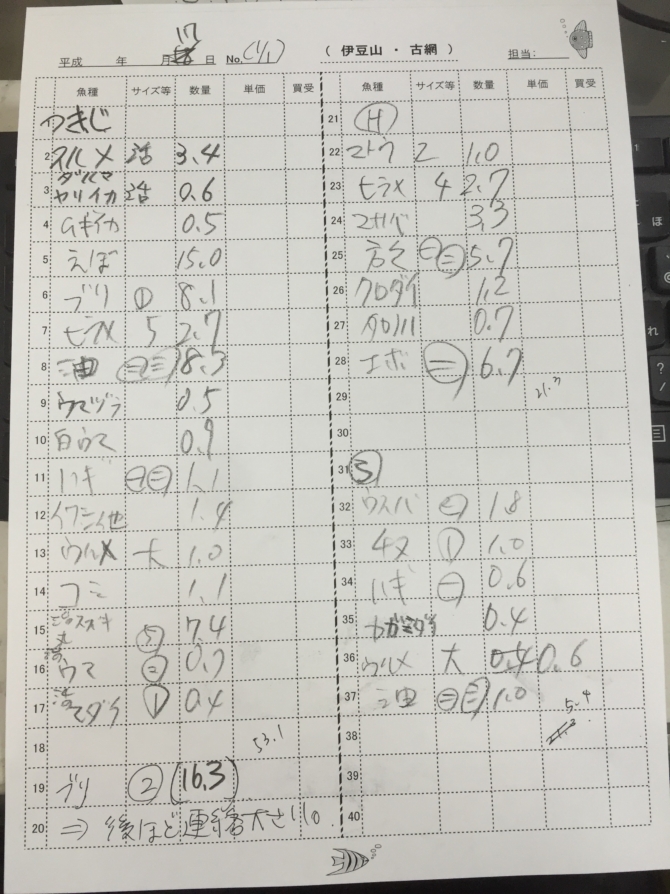 平成 年 月 17 日 No. (1/1) ( 伊豆山 ・ 古網 ) 担当:
魚種 サイズ等 数量 単価 買受
つきじ
2 スルメ 活 3.4
3 ダルマ ヤリイカ 活 0.6
4 ムギイカ 0.5
5 えぼ 15.0
6 ブリ ① 8.1
7 ヒラメ 5 2.7
8 油 ㊁㊂ 8.3
9 ウマヅラ 0.5
10 白ウマ 0.9
11 ハギ ㊀㊁ 1.1
12 イワシ他 1.4
13 ウルメ 大 1.0
14 ゴミ 1.1
15 スズキ ⑤ 7.4
16 活 ウマ ㊁ 0.7
17 活 マダイ ① 0.4
18 53.1
19 ブリ ② (16.3)
20 ⇒ 後ほど連絡下さい。
魚種 サイズ等 数量 単価 買受
21 Ⓗ
22 マトウ 2 1.0
23 ヒラメ 4 2.7
24 マサバ 3.3
25 ㊀㊁ 5.7
26 クロダイ 1.2
27 0.7
28 エボ ㊁ 6.7
29 21.3
30
31 Ⓢ
32 ウスバ ㊁ 1.8
33 チヌ ① 1.0
34 ハギ ㊀ 0.6
35 カガミダイ 0.4
36 ウルメ 大 0.6
37 油 ㊁㊂ 1.0
38 5.4
39
40